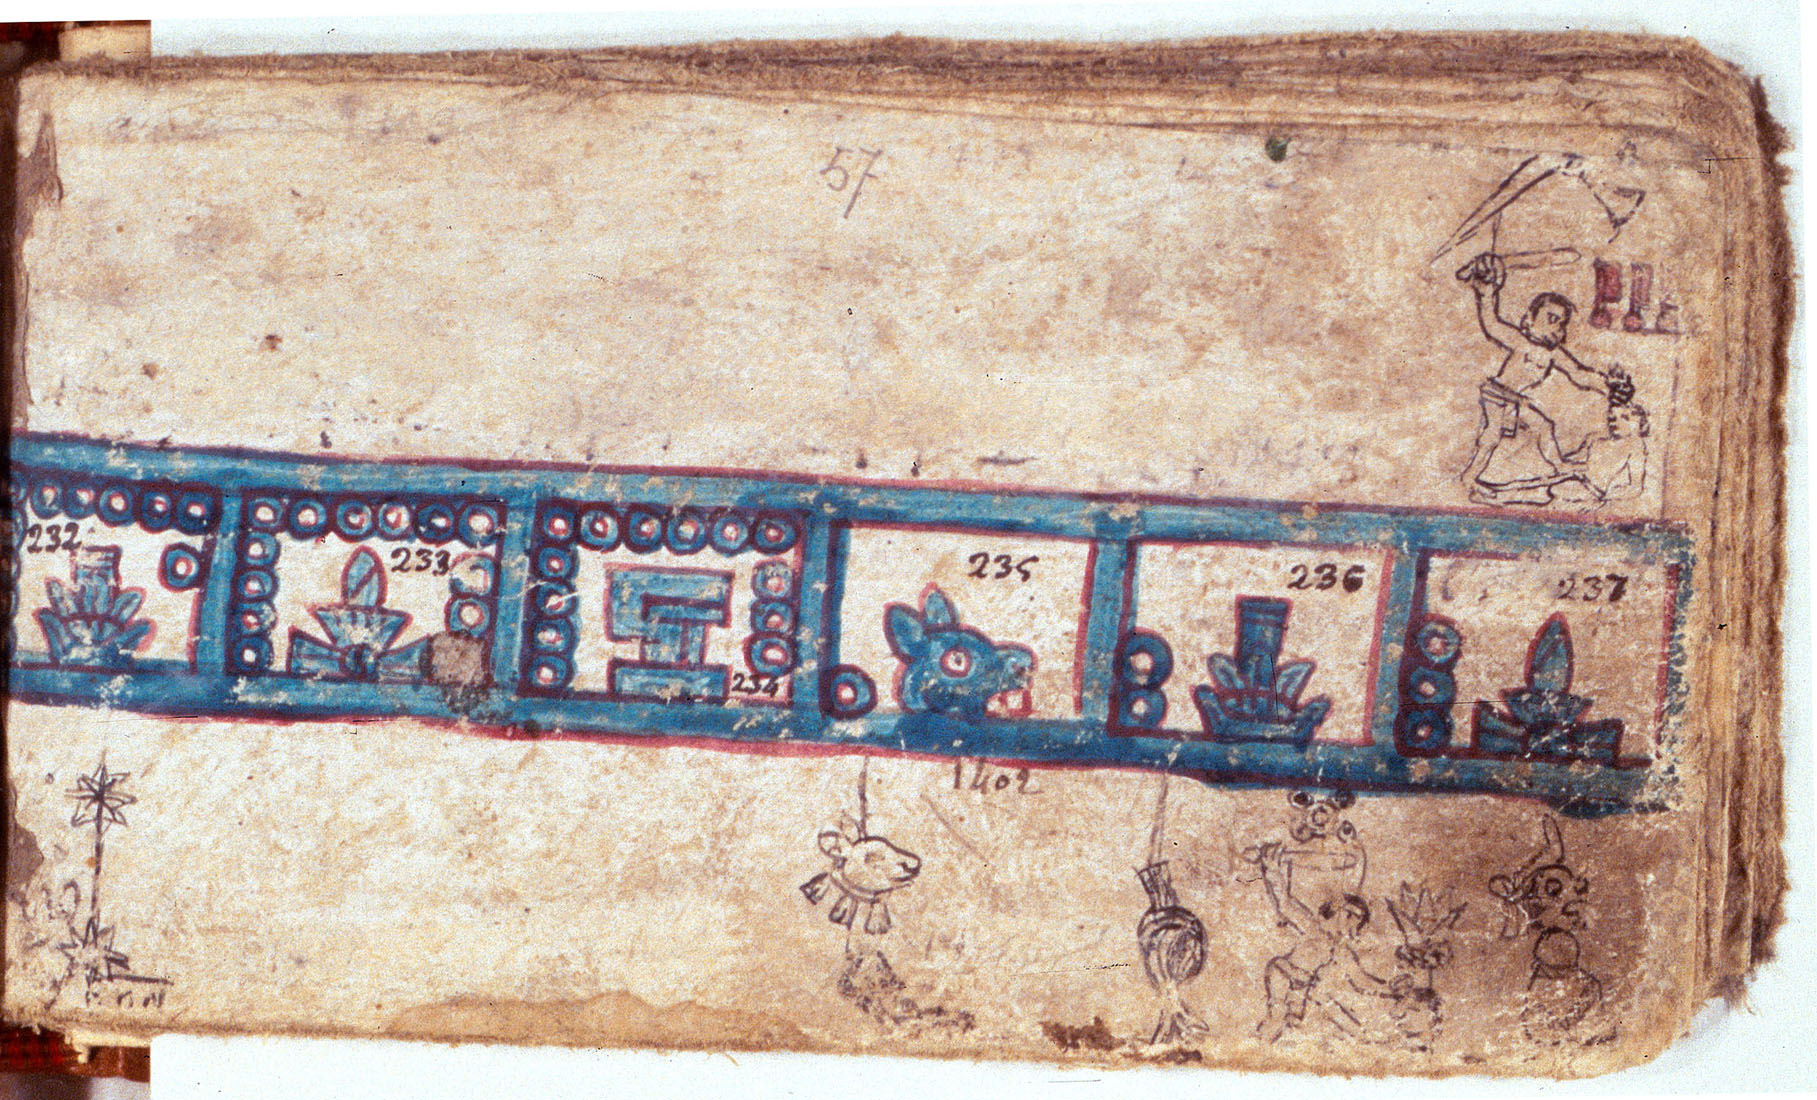 57
232
233
234
235
236
237
1402